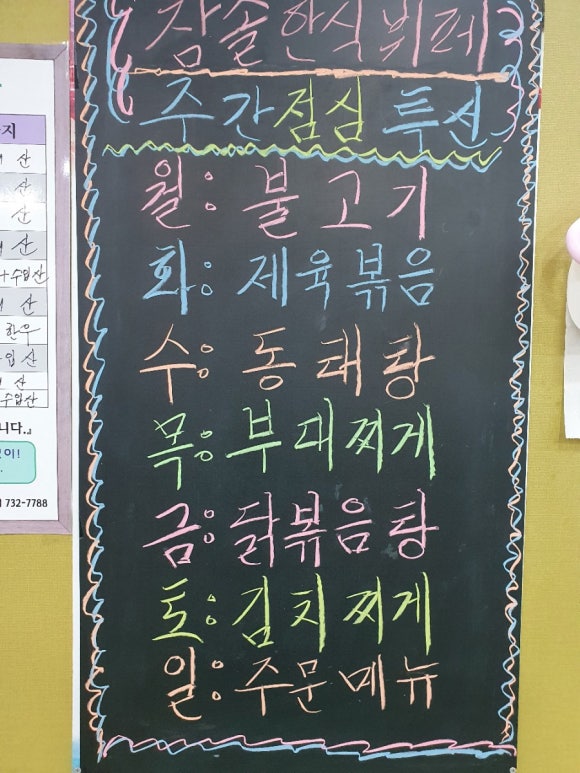 참솔한식뷔페
주간점심특선
월: 불고기
화: 제육볶음
수: 동태탕
목: 부대찌게
금: 닭볶음탕
토: 김치찌게
일: 주문메뉴
지
산
산
산
산
수입산
산
한우
산
수입산
니다.』
732-7788